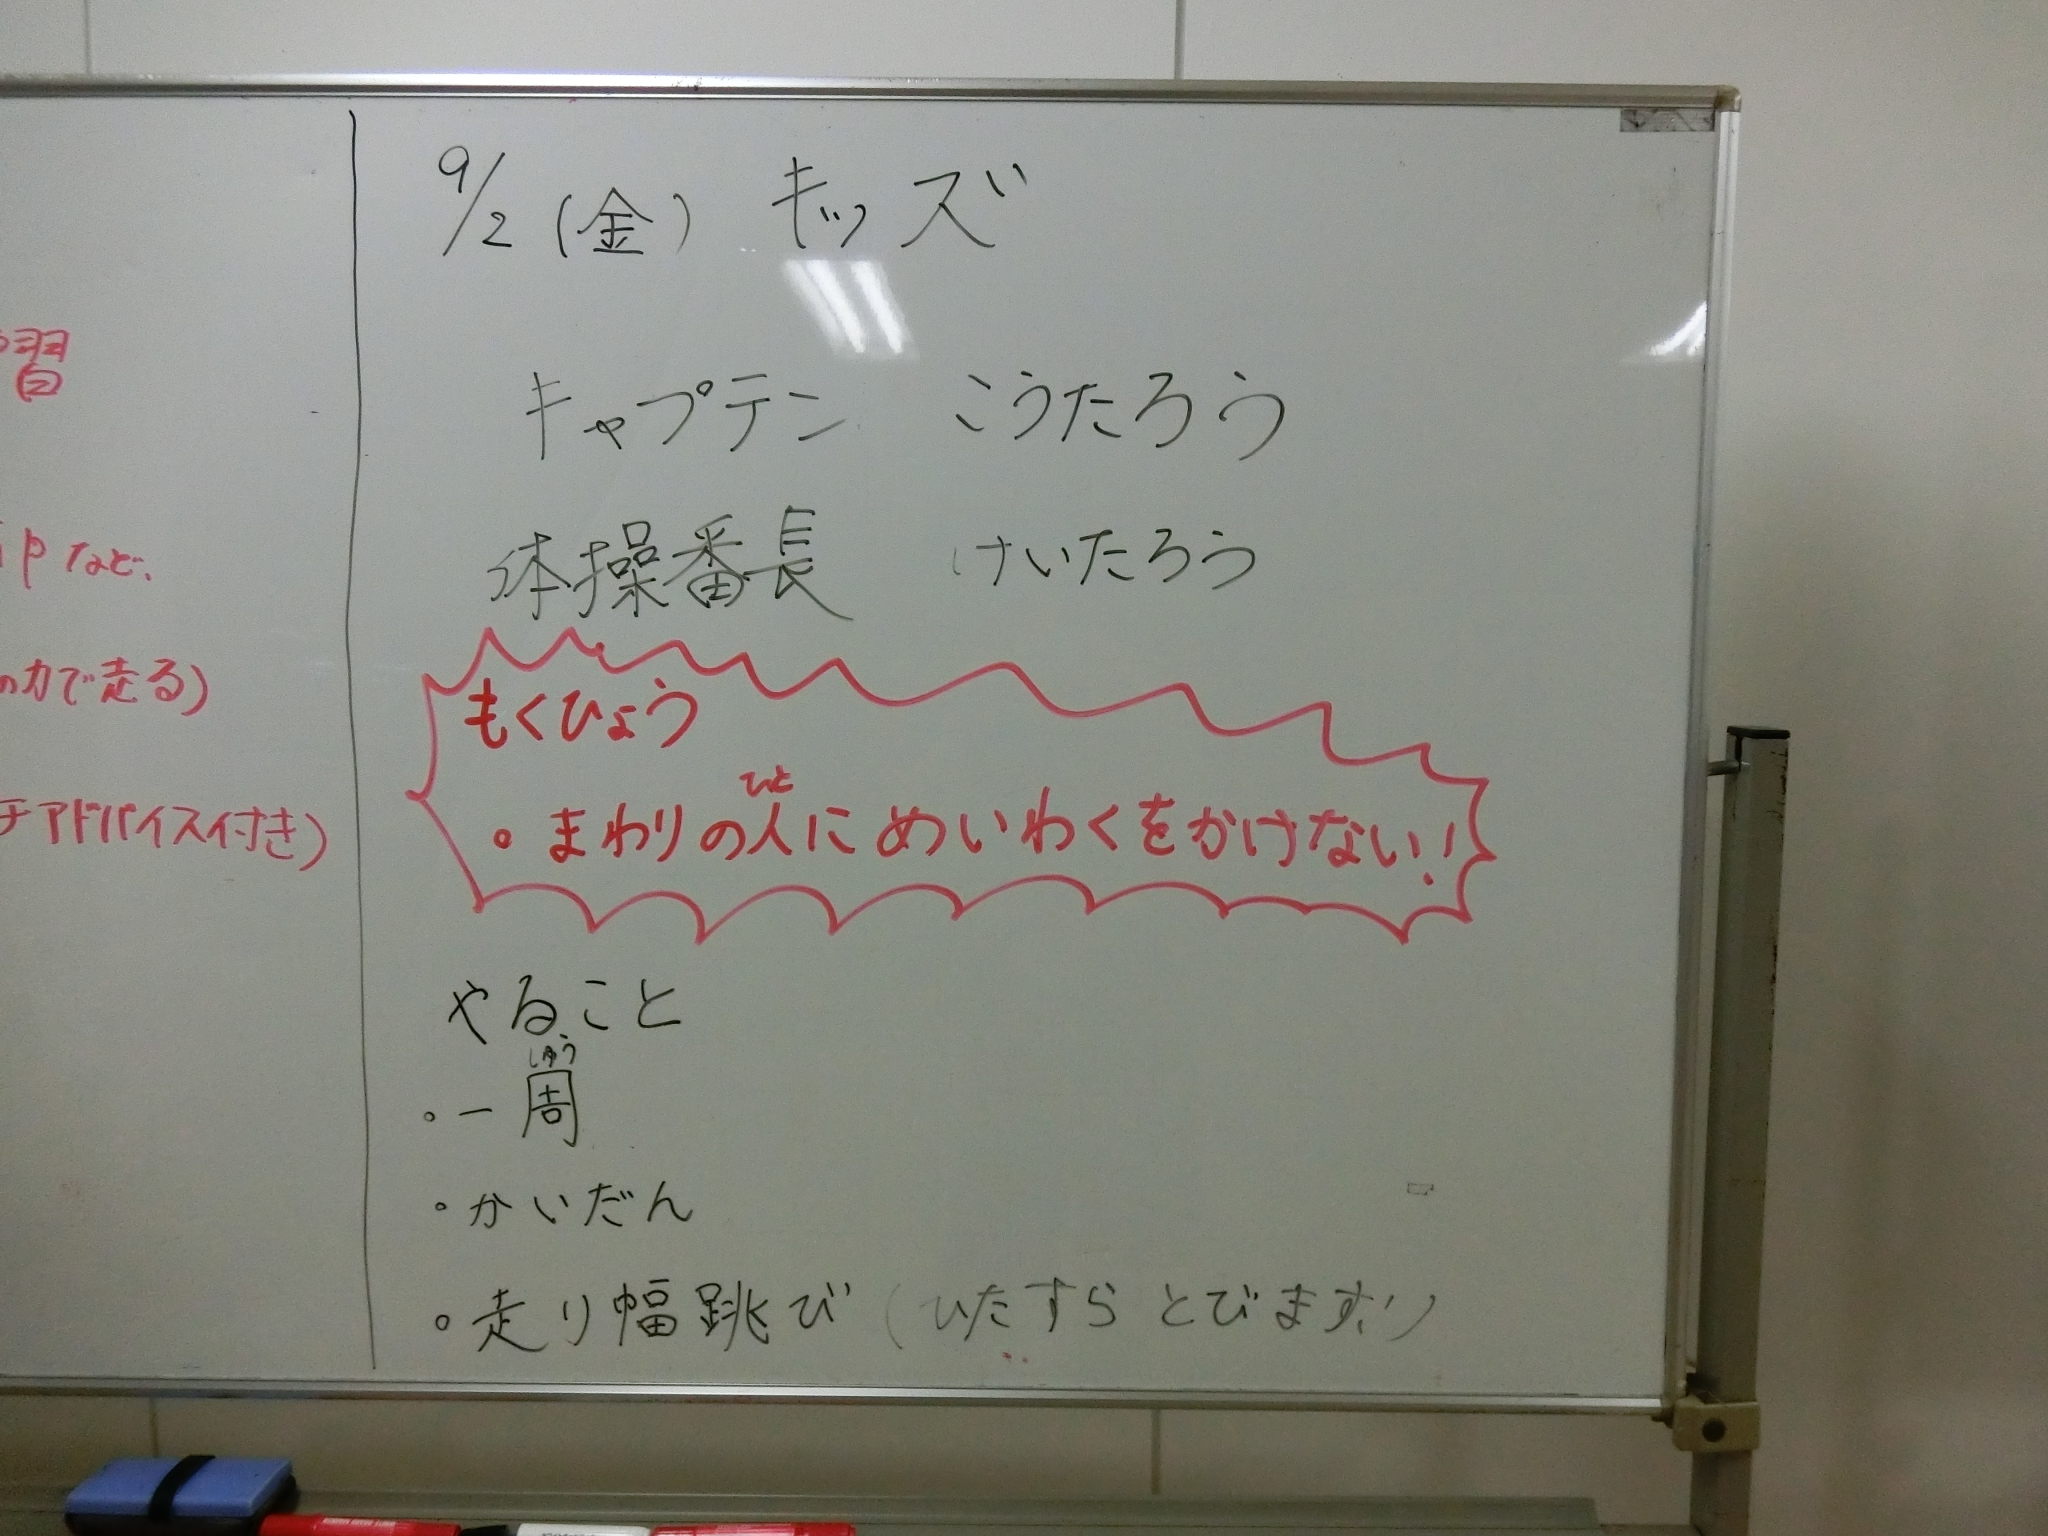 習
ipなど、
の力で走る)
チアドバイス付き)
9/2(金) キッズ
キャプテン こうたろう
体操番長 けいたろう
もくひょう
ひと
・まわりの人にめいわくをかけない!
やること
しゅう
・一周
・かいだん
・走り幅跳び(ひたすらとびます!)